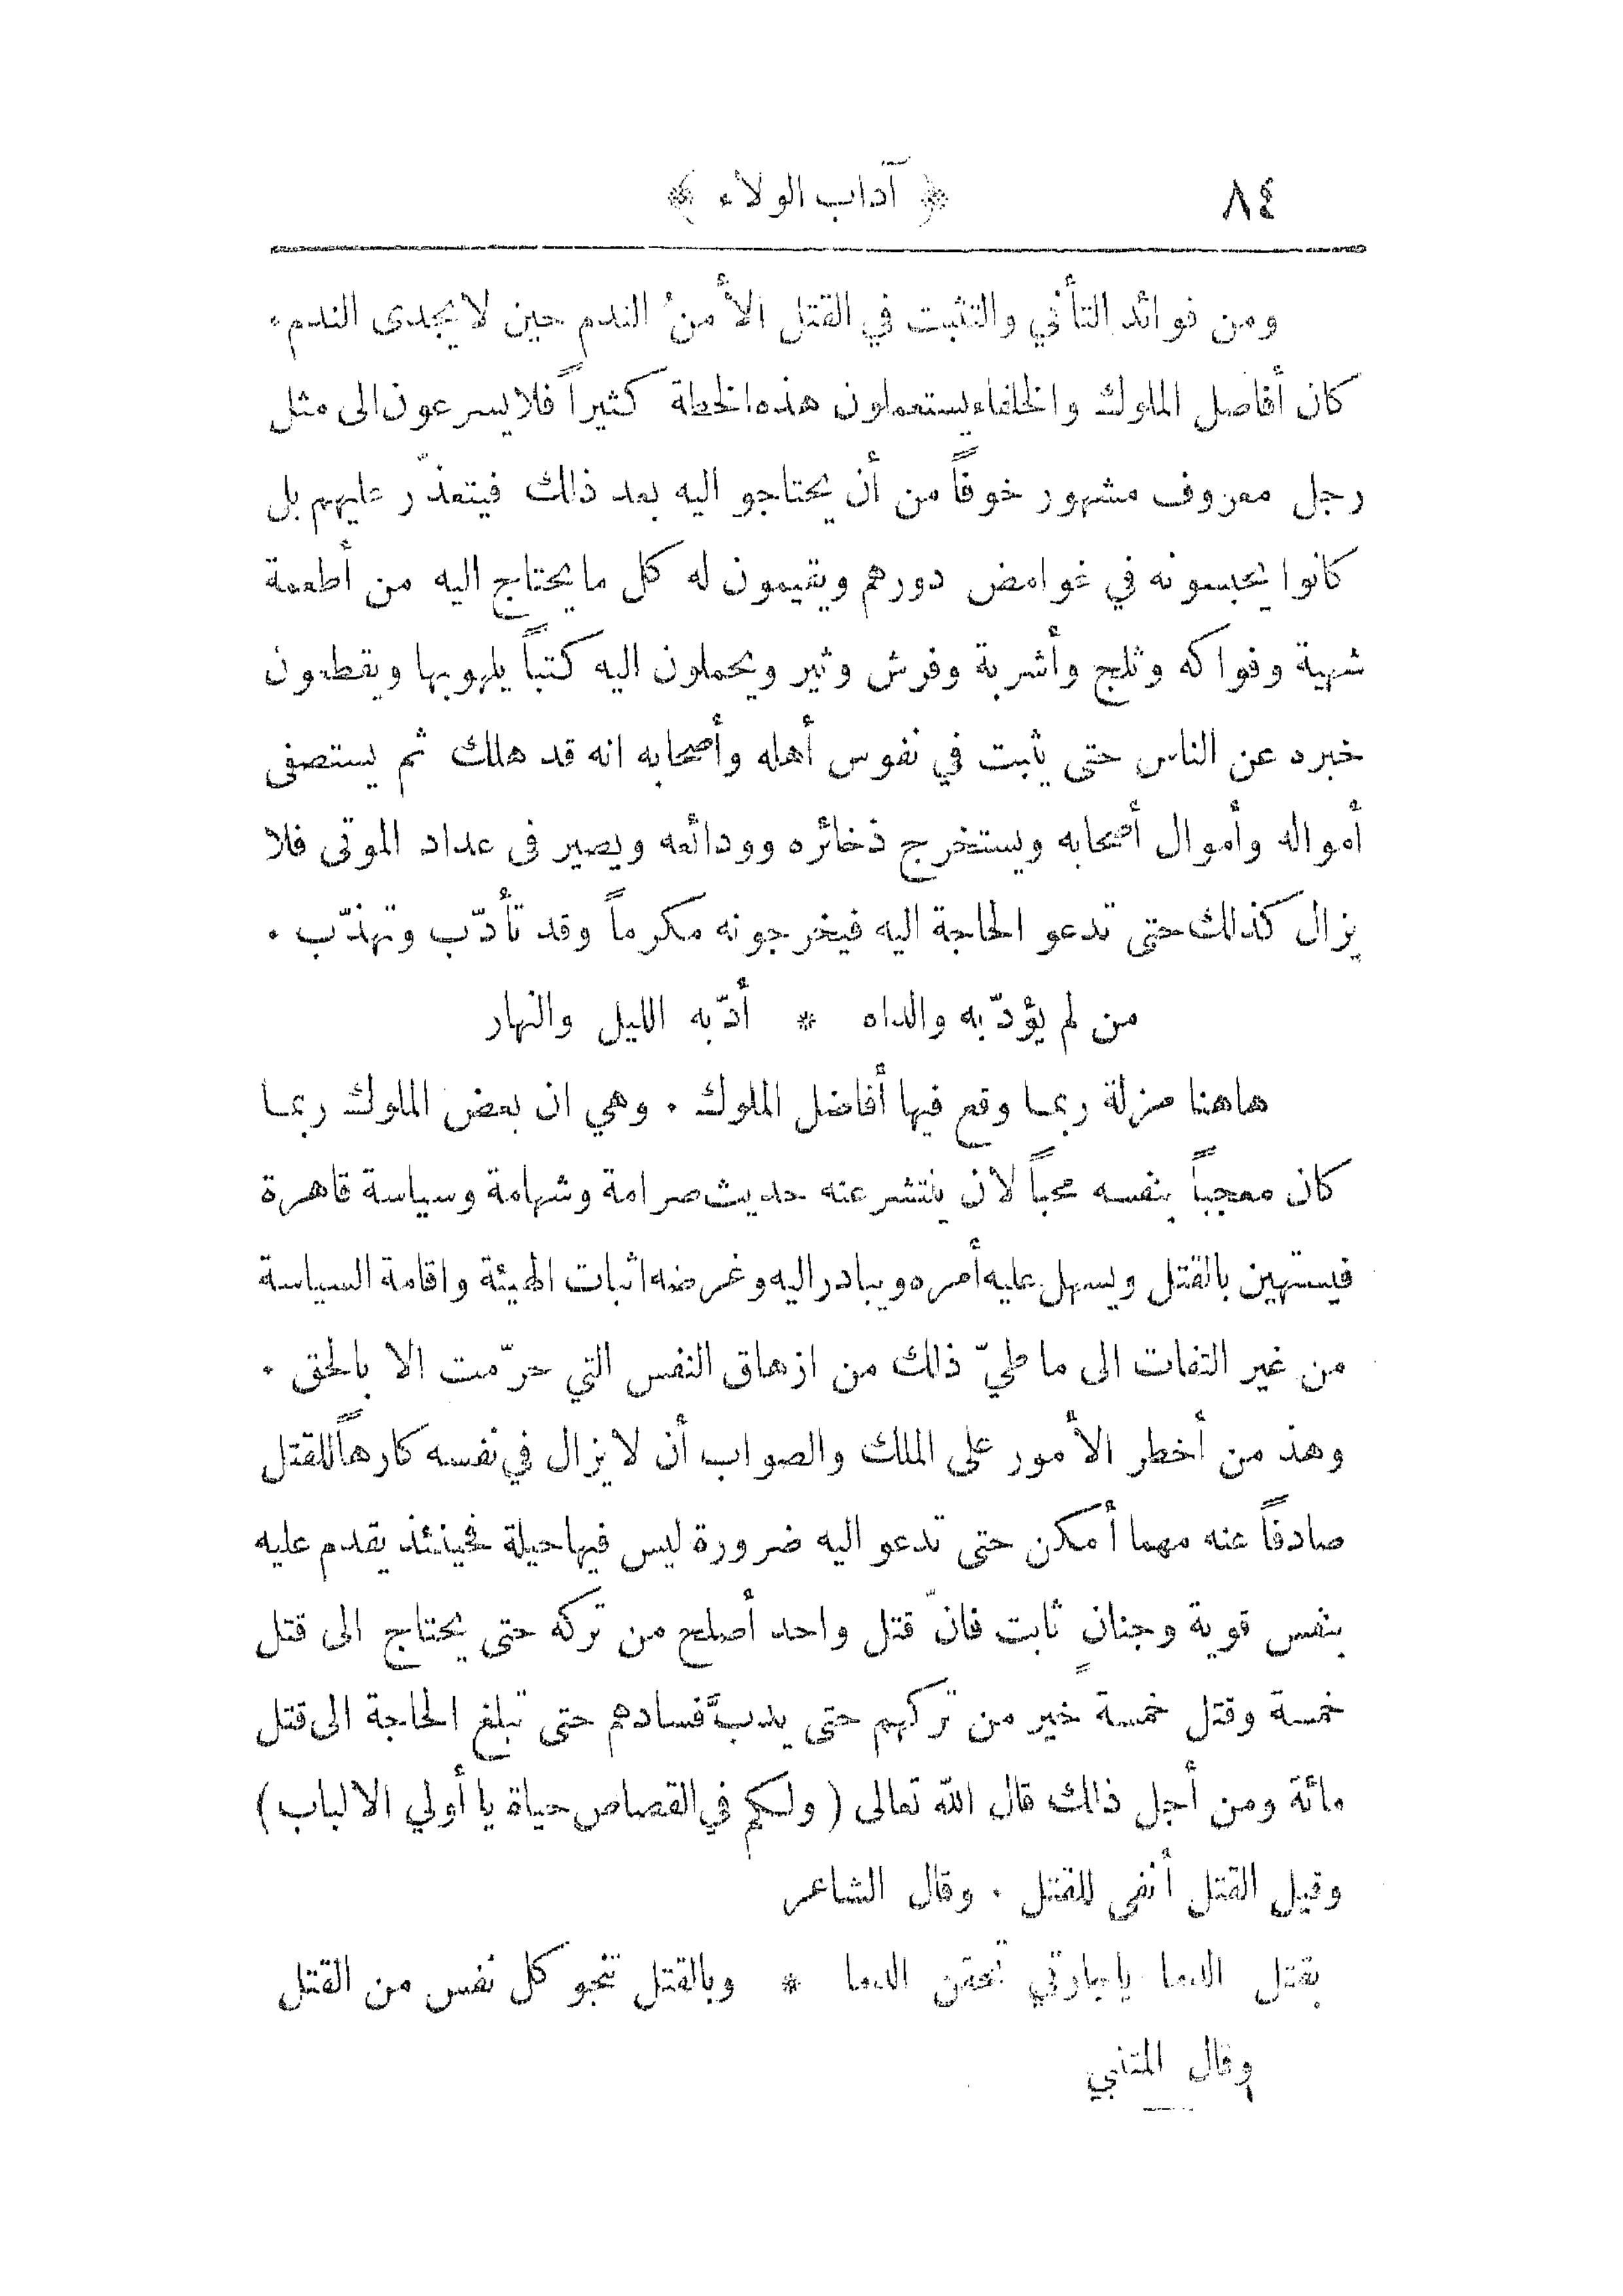 ٨٤ ﴿ آداب الولاء ﴾
ومن فوائد التأني والتثبت في القتل الأمنُ الندم حين لا يجدى الندم.
كان أفاضل الملوك والخلفاء يستعملون هذه الخطة كثيراً فلا يسرعون الى مثل
رجل معروف مشهور خوفاً من أن يحتاجو اليه بعد ذلك فيتعذّر عليهم بل
كانوا يحبسونه في غوامض دورهم ويقيمون له كل ما يحتاج اليه من أطعمة
شهية وفواكه وثلج وأشربة وفرش وثير ويحملون اليه كتباً يلهو بها ويقطعون
خبره عن الناس حتى يثبت في نفوس أهله وأصحابه انه قد هلك ثم يستصفى
أمواله وأموال أصحابه ويستخرج ذخائره وودائعه ويصير فى عداد الموتى فلا
يزال كذلك حتى تدعو الحاجة اليه فيخرجونه مكرماً وقد تأدّب وتهذّب .
من لم يؤدّبه والداه * أدّبه الليل والنهار
هاهنا مزلة ربما وقع فيها أفاضل الملوك . وهي ان بعض الملوك ربما
كان معجباً بنفسه محباً لان ينتشر عنه حديث صرامة وشهامة وسياسة قاهرة
فيستهين بالقتل ويسهل عليه أمره ويبادر اليه وغرضه اثبات الهيئة واقامة السياسة
من غير التفات الى ما طيّ ذلك من ازهاق النفس التي حرّمت الا بالحق .
وهذ من أخطر الأمور على الملك والصواب أن لا يزال في نفسه كارهاً للقتل
صادفاً عنه مهما أمكن حتى تدعو اليه ضرورة ليس فيها حيلة فحينئذ يقدم عليه
بنفس قوية وجنانٍ ثابت فانّ قتل واحد أصلح من تركه حتى يحتاج الى قتل
خمسة وقتل خمسةٍ خير من تركهم حتى يدبَّ فسادهم حتى تبلغ الحاجة الى قتل
مائة ومن أجل ذلك قال الله تعالى ( ولكم في القصاص حياة يا أولي الالباب )
وقيل القتل أنفى للقتل . وقال الشاعر
بقتل الدما يا جارتي تحقن الدما * وبالقتل تنجو كل نفس من القتل
وقال المتنبي